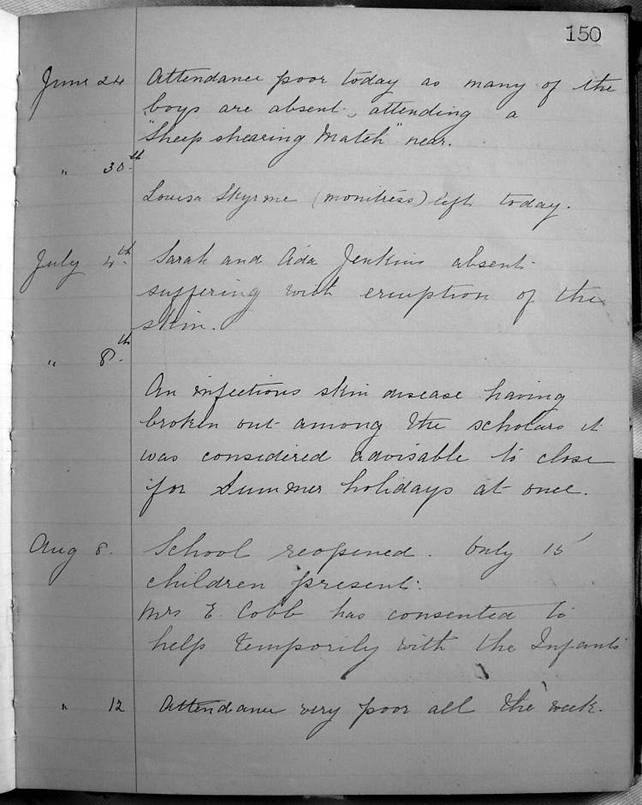 150
June 24 Attendance poor today as many of the
boys are absent, attending a
"Sheep shearing Match" near.
" 30th
Louisa Skyrme (monitress) left today.
July 4th Sarah and Ada Jenkins absent
suffering with eruption of the
skin.
" 8th
An infectious skin disease having
broken out among the scholars it
was considered advisable to close
for Summer holidays at once.
Aug 8. School reopened. Only 15
children present.
Mrs E. Cobb has consented to
help temporily with the Infants
" 12 Attendance very poor all the week.